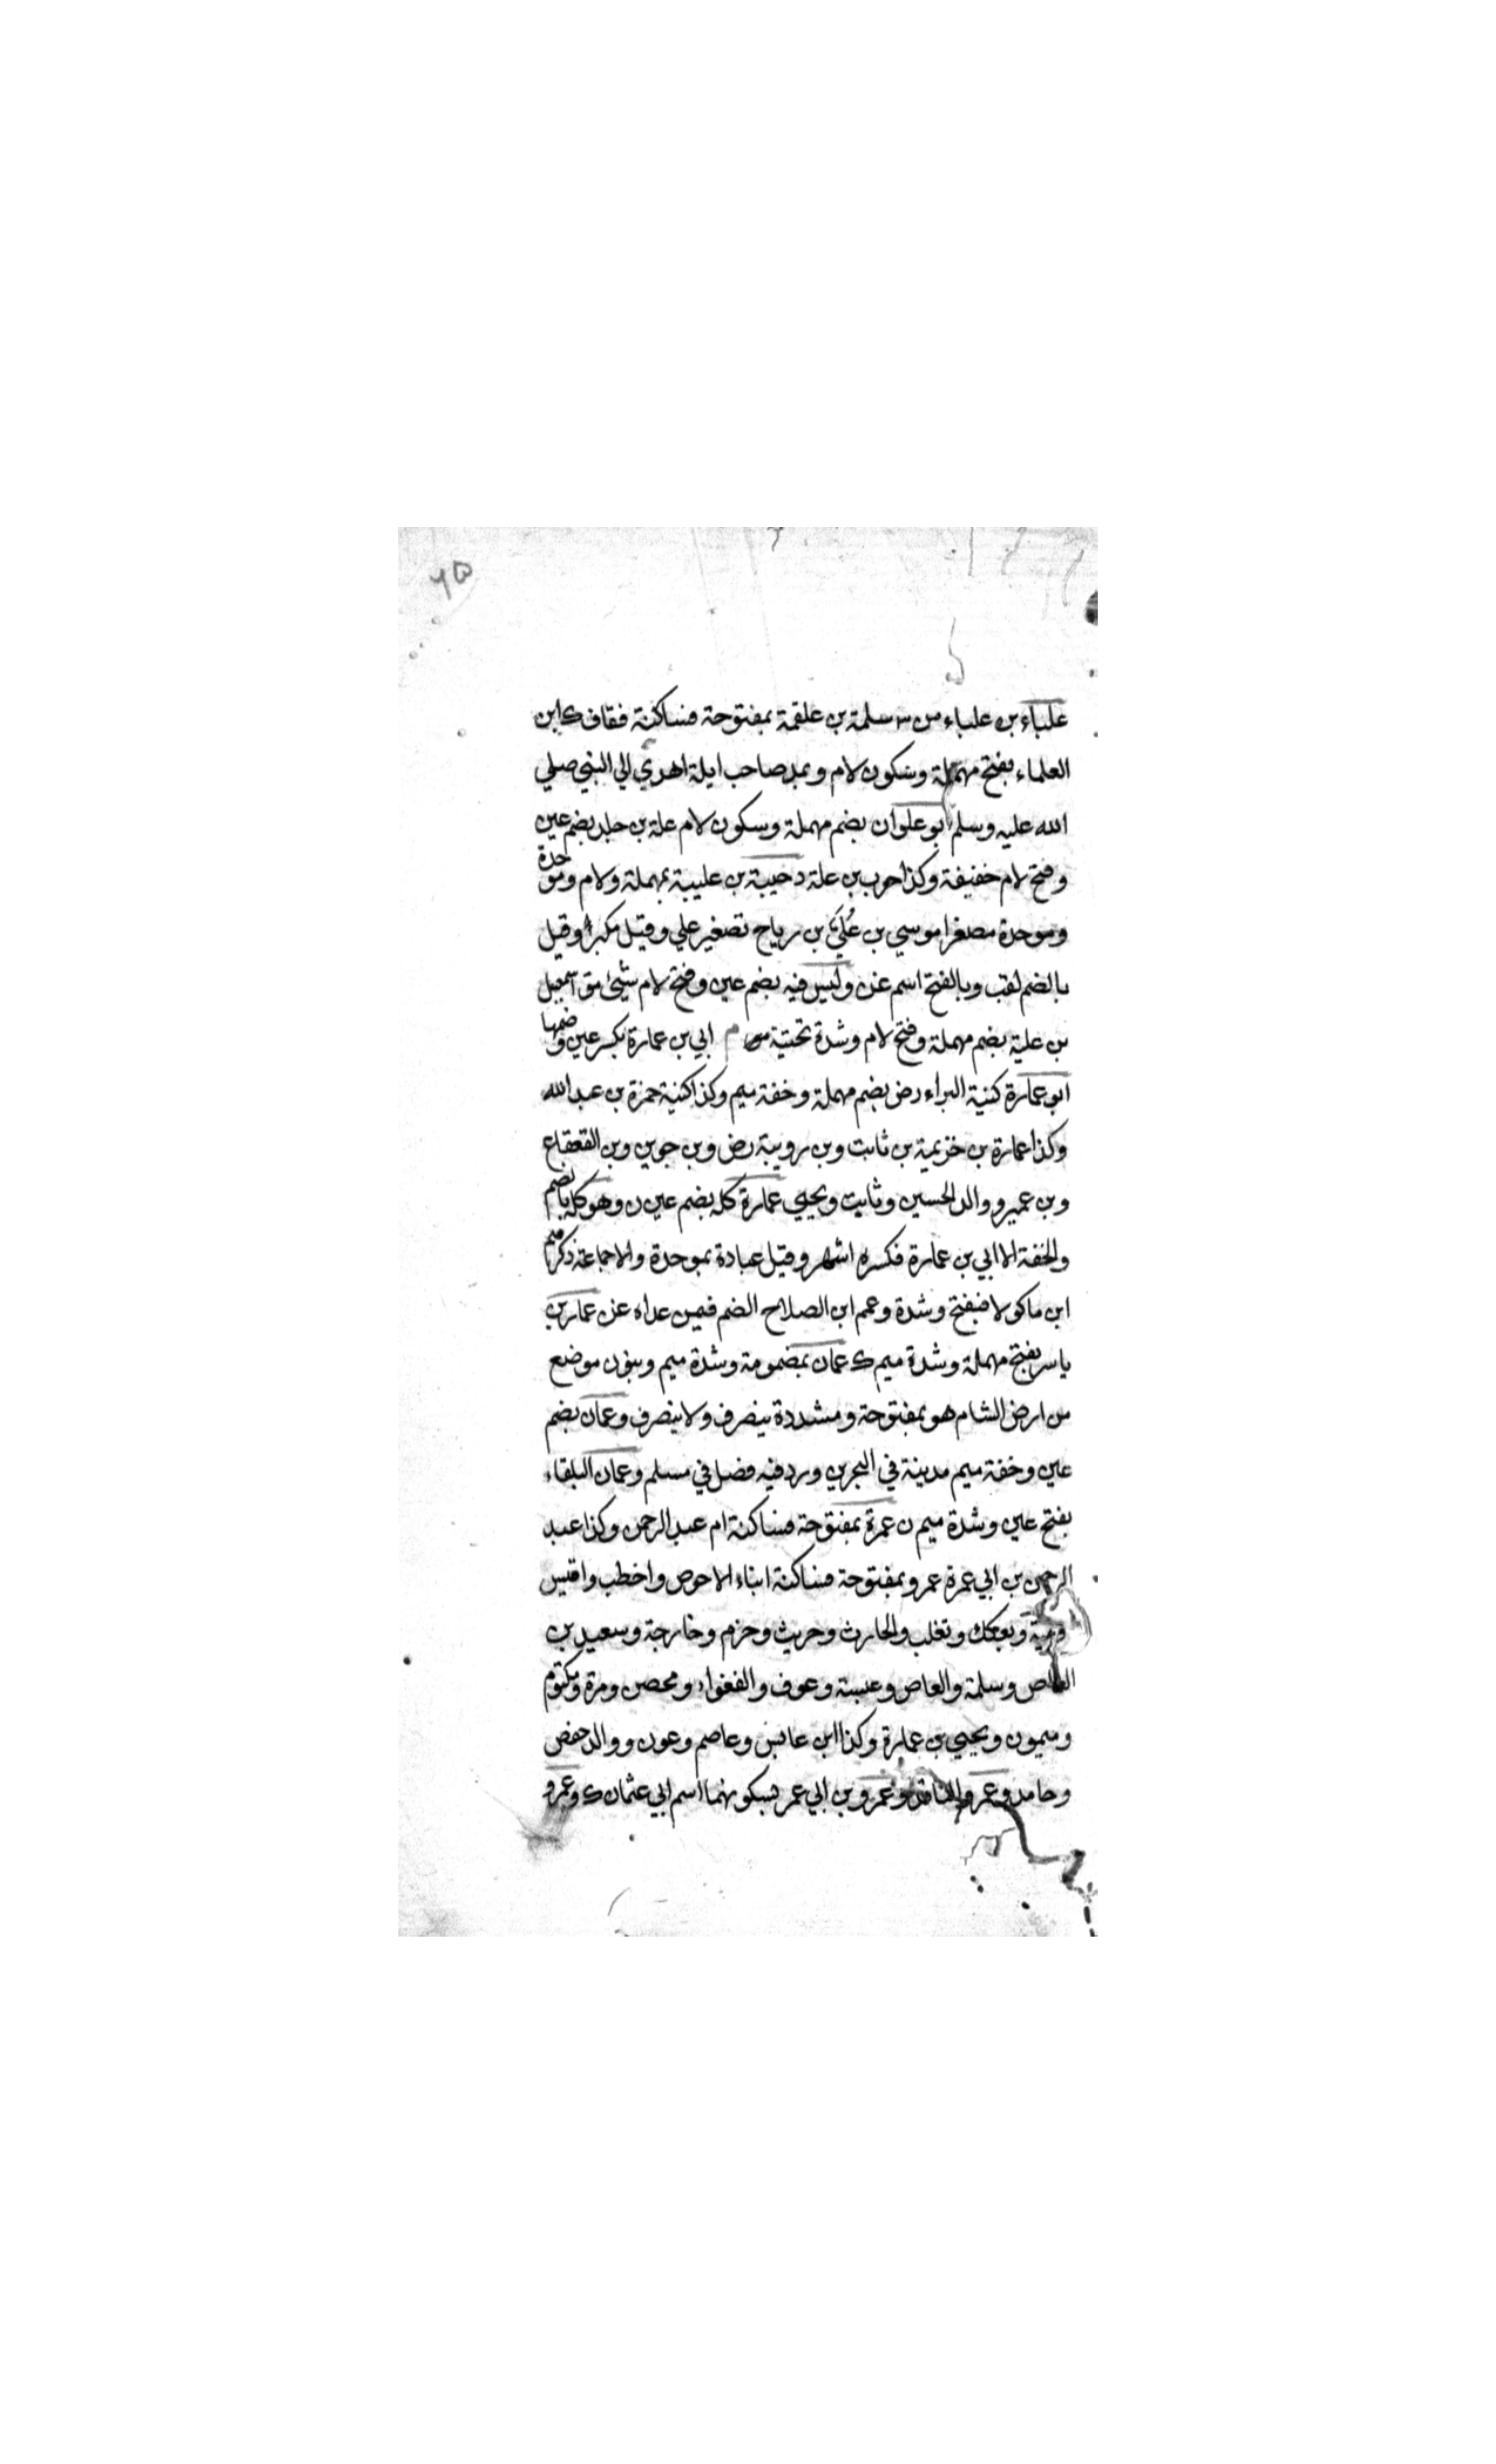 ٦٥
علباء بن علباء من س سلمة بن علقمة بمفتوحة فساكنة فقاف ك ابن
العلماء بفتح مهملة وسكون لام وبمد صاحب ايلة اهدي الي النبي صلي
الله عليه وسلم ابو علوان بضم مهملة وسكون لام علة بن جلد بضم عين
وفتح لام خفيفة وكذا حرب بن علة دحيبة بن عليبة بمهملة ولام وموحدة
وموحدة مصغرا موسي بن عُلَيّ بن رباح تصغير علي وقيل مكبرا وقيل
بالضم لقب وبالفتح اسم غن وليس فيه بضم عين وفتح لام شيئ مق اسمعيل
بن علية بضم مهملة وفتح لام وشدة تحتية ابي بن عمارة بكسر عين وضمها
ابو عمارة كنية البراء رض بضم مهملة وخفة ميم وكذا كنية حمزة بن عبد الله
وكذا عمارة بن خزيمة بن ثابت وبن رويبة رض وبن جوين وبن القعقاع
وبن عمير ووالد الحسين وثابت ويحيي عمارة كله بضم عين ن وهو كله بالضم
والخفة الا ابي بن عمارة فكسره اشهر وقيل عبادة بموحدة والا جماعة ذكرهم
ابن ماكولا فبفتح وشدة وعمم ابن الصلاح الضم فيمن عداه غن عمار بن
ياسر بفتح مهملة وشدة ميم ك عمان بمضمومة وشدة ميم وبنون موضع
من ارض الشام هو بمفتوحة ومشددة ينصرف ولا ينصرف وعمان بضم
عين وخفة ميم مدينة في البحرين ورد فيه فضل في مسلم وعمان البلقاء
بفتح عين وشدة ميم ن عمرة بمفتوحة فساكنة ام عبد الرحمن وكذا عبد
الرحمن بن ابي عمرة عمرو بمفتوحة فساكنة ابناء الاحوص واخطب واقيس
وبعكك وتغلب والحارث وحريث وحزم وخارجة وسعيد بن
العاص وسلمة والعاص وعبسة وعوف والفغواء ومحصن ومرة ومكتوم
وميمون ويحيي بن عمارة وكذا ابن عابس وعاصم وعون ووالد حفص
وحامد وعمرو الناقد وعمرو بن ابي عمر بسكونهما اسم ابي عثمان ك وعمرو